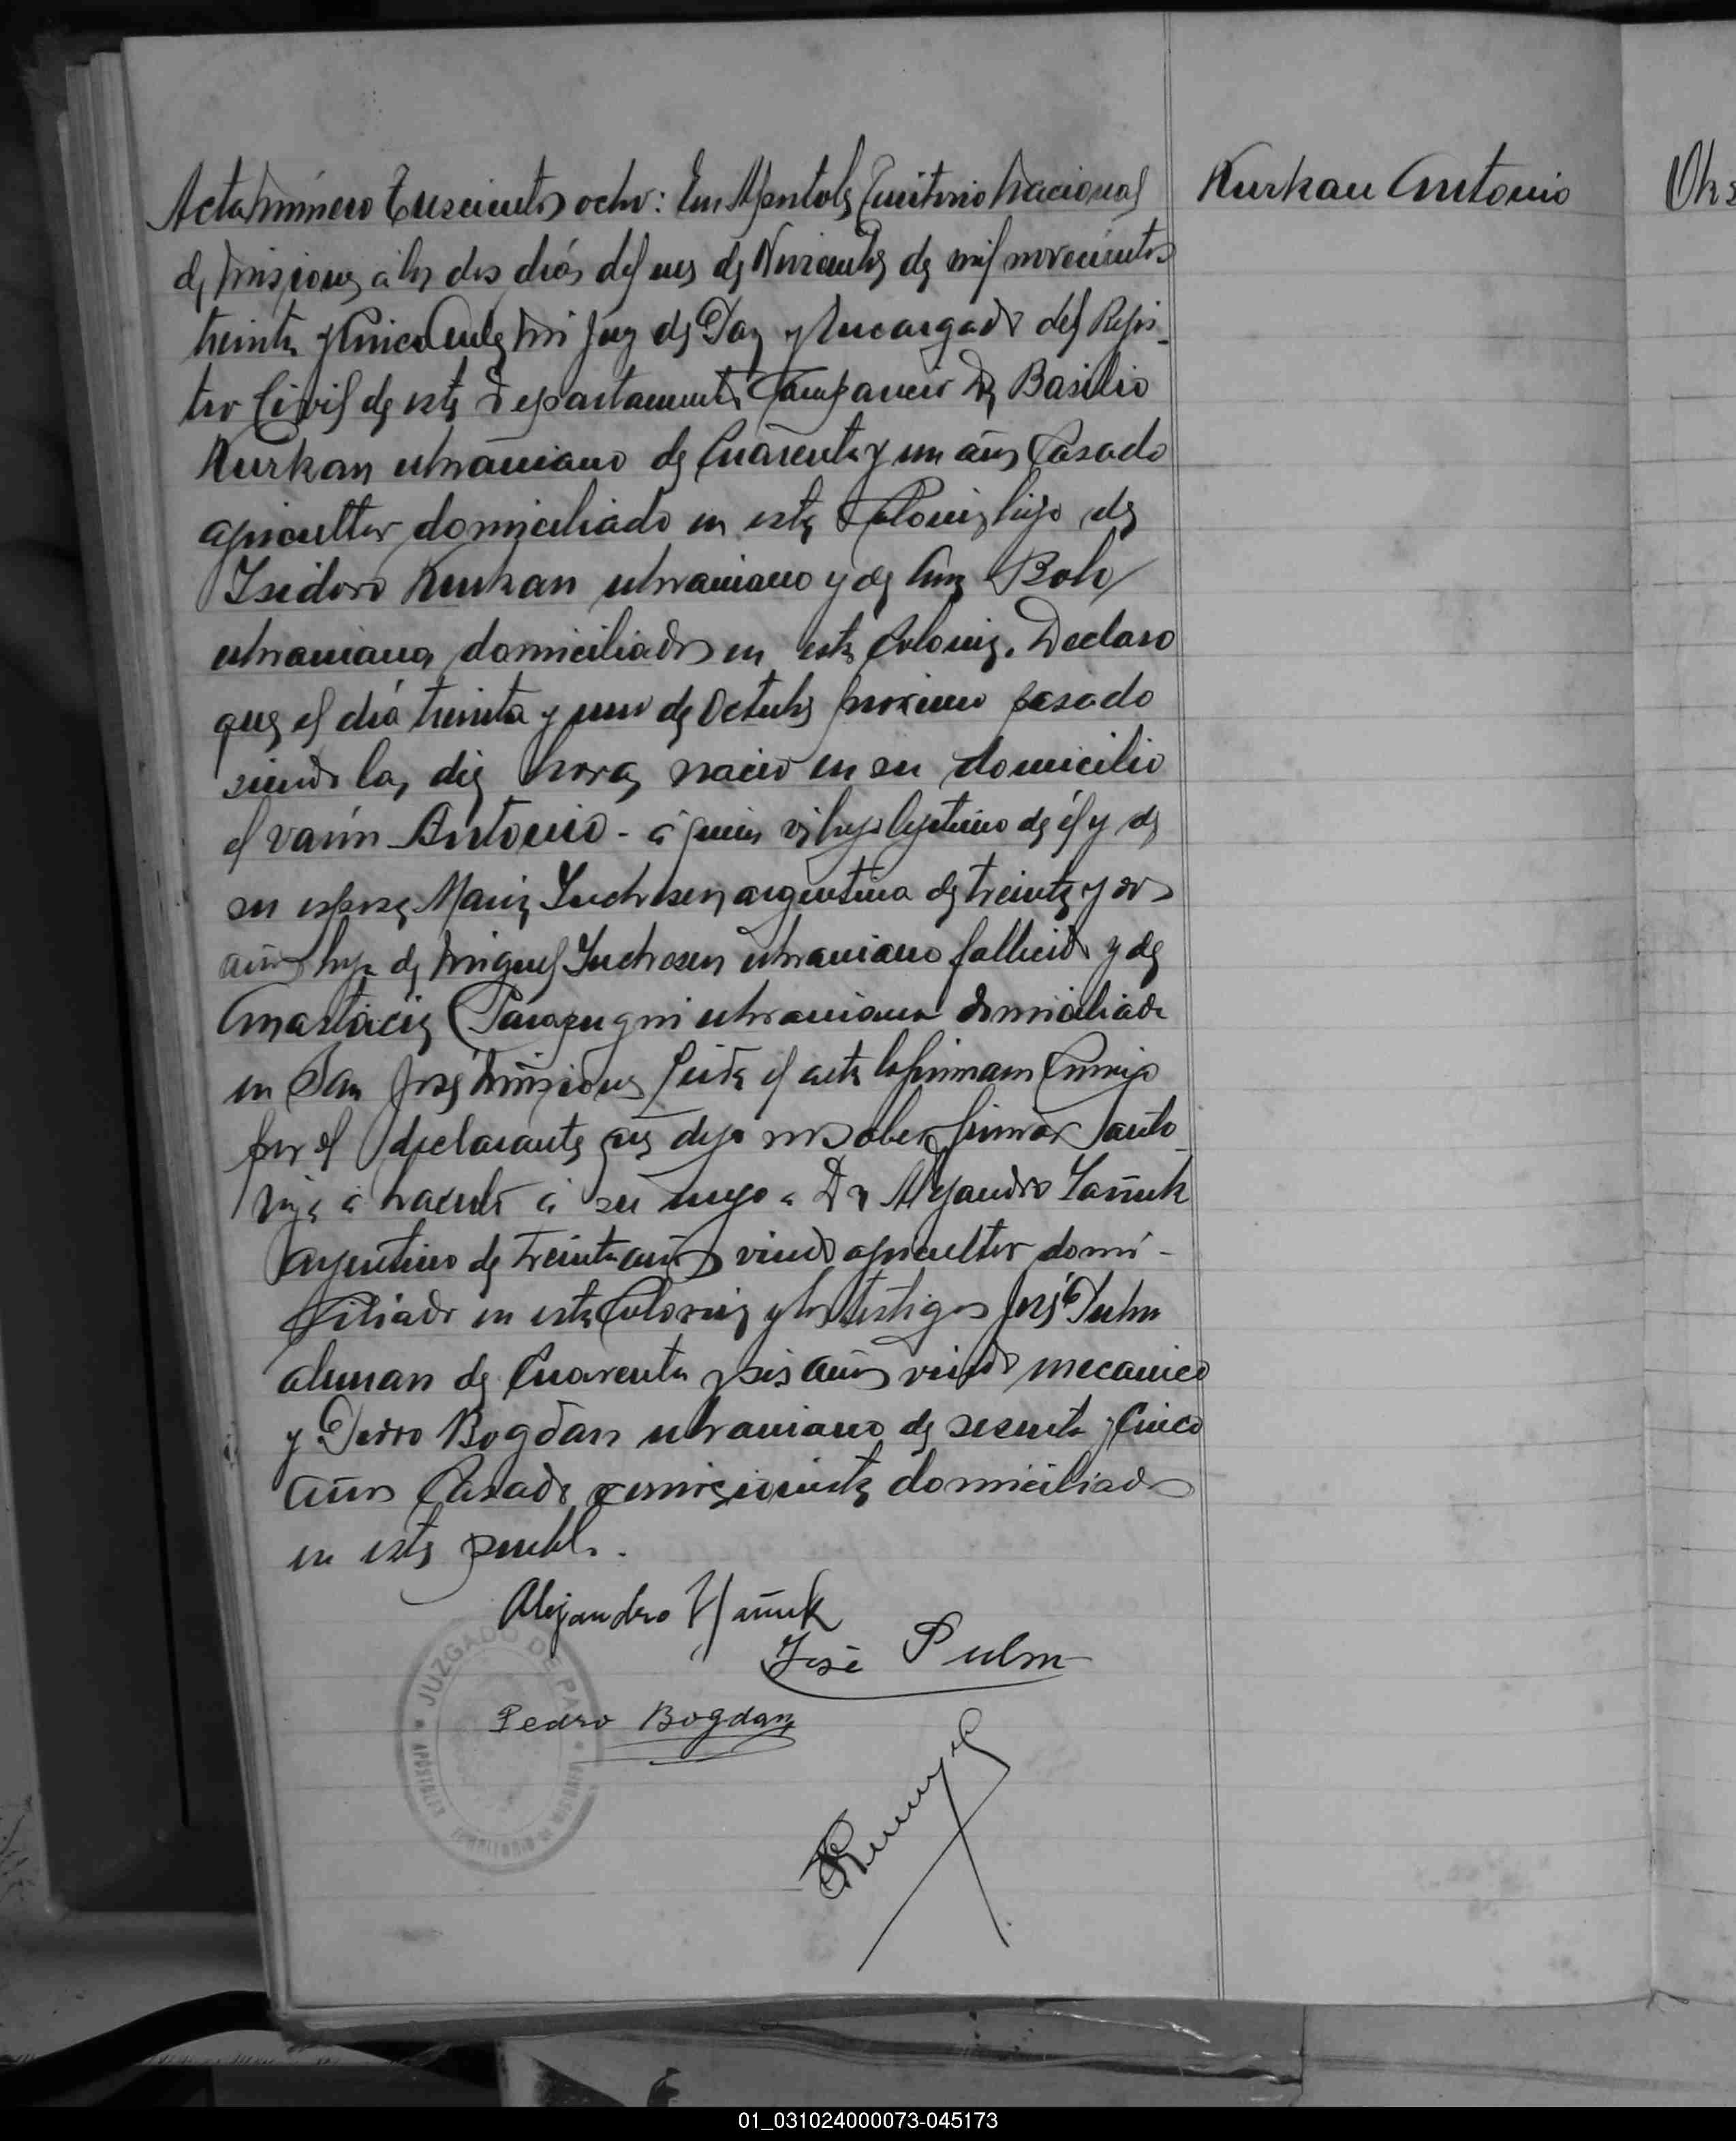 Acta número trescientos ocho: En Apostoles Territorio Nacional
de Misiones a los dos días del mes de Noviembre de mil novecientos
treinta y cinco ante mi Juez de Paz y Encargado del Regis-
tro Civil de este Departamento Comparecio Dn Basilio
Kurkan ukraniano de Cuarenta y un años Casado
agricultor domiciliado en esta Colonia hijo de
Isidoro Kurkan ukraniano y de Ana
ukraniana domiciliados en esta Colonia. Declaro
que el día treinta y uno de Octubre proximo pasado
siendo las diez horas nacio en su domicilio
el varón Antonio - a quien vi hijo legitimo de él y de
su esposa Maria argentina de treinta y dos
años hija de Miguel ukraniano fallecido y de
Anastacia ukraniana domiciliada
en San José Misiones Leida el acta la firmaron Conmigo
por el declarante que dijo no saber firmar auto-
riza a hacerlo a su ruego a Dn Alejandro Yañuk
argentino de treinta años viudo agricultor domi-
ciliado en esta Colonia y los testigos José Pulm
aleman de Cuarenta y seis años viudo mecanico
y Pedro Bogdan ukraniano de sesenta y Cinco
años Casado comisionista domiciliados
en este pueblo.
Alejandro Yañuk
José Pulm
Pedro Bogdan
JUZGADO DE PAZ
APOSTOLES
TERRITORIO DE MISIONES
Kurkan Antonio
01_031024000073-045173